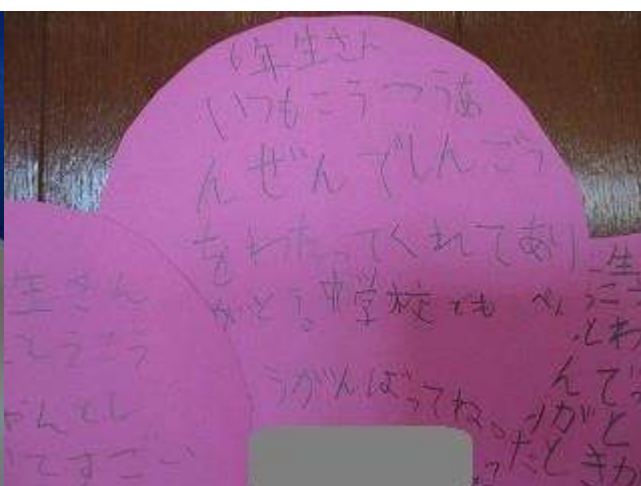 6年生さん
いつもこうつうあ
んぜんでしんごう
をわたってくれてあり
がとう。中学校でも べん
うがんばってね。
生さん
とうこう
ゃんとし
いてすごい
生
とわ
んで
りがと
たとき